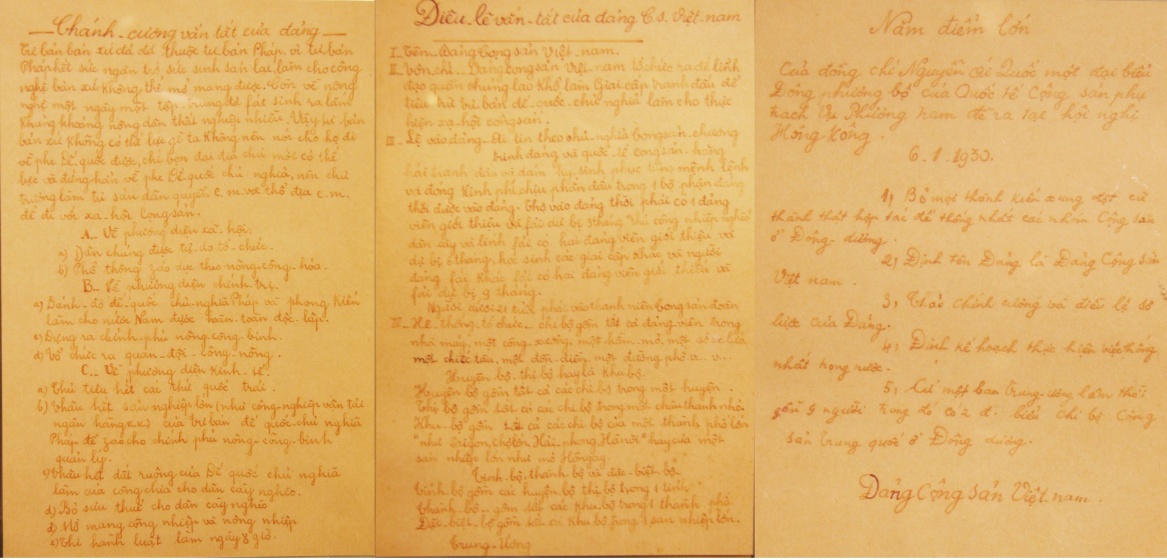 Chánh-cương vắn tắt của đảng
Tư bản bản xứ đã đã thuộc tư bản Pháp, vì tư bản
Pháp hết sức ngăn trở sức sinh sản lai, làm cho công
nghệ bản xứ không thể mở mang được. Còn về nông
nghệ một ngày một tập trung đã fát sinh ra lắm
khủng khoảng, nông dân thất nghiệp nhiều. Vậy tư bản
bản xứ không có thế lực gì ta không nên nói cho họ đi
về phe Đế quốc được, chỉ bọn đại địa chủ mới có thế
lực và đứng hẳn về phe Đế quốc chủ nghĩa, nên chủ
trương làm tư sản dân quyền c.m. và thổ địa c.m.
để đi tới xã-hội cộng sản.
A_ Về phương diện xã-hội.
a) Dân chúng được tự-do tổ-chức.
b) Phổ thông záo dục theo nông-công-hóa.
B_ Về phương diện chính-trị.
a) Đánh-đổ đế-quốc chủ-nghĩa Pháp và phong-kiến
làm cho nước Nam được hoàn-toàn độc-lập.
c) Dựng ra chính-phủ nông-công-binh.
d) Tổ chức ra quân-đội-công-nông.
C_ Về phương diện kinh-tế.
a) Thủ tiêu hết các thứ quốc trái.
b) Thâu hết sản nghiệp lớn (như công-nghiệp vận tải
ngân hàng.v.v) của tư bản đế quốc chủ nghĩa
Pháp để záo cho chính phủ nông-công-binh
quản lý.
c) Thâu hết đất ruộng của Đế quốc chủ nghĩa
làm của công chia cho dân cầy nghèo.
d) Bỏ sưu thuế cho dân cầy nghèo
đ) Mở mang công nghiệp và nông nghiệp
e) Thi hành luật làm ngày 8 giờ.
Điều-lệ vắn-tắt của đảng C.s. Việt-nam
I_ Tên_ Đảng Cộng sản Việt-nam.
II_ Tôn chỉ_ Đảng cộng sản Việt-nam tổ chức ra để lĩnh
đạo quần chúng lao khổ làm Giai cấp tranh đấu để
tiêu trừ tư bản đế-quốc-chủ nghĩa làm cho thực
hiện xã-hội cộng sản.
III_ Lệ vào đảng_ Ai tin theo chủ-nghĩa cộng sản, chương
trình đảng và quốc-tế cộng sản, hăng
hái tranh đấu và dám hy sinh phục tùng mệnh lệnh
và đóng kinh phí, chịu phấn đấu trong 1 bộ phận đảng
thời được vào đảng. Thợ vào đảng thời phải có 1 đảng
viên giới thiệu và fải dự bị 3 tháng, thủ công nhân nghèo
dân cầy và lính fải có hai đảng viên giới thiệu và
dự bị 6 tháng, học sinh các giai cấp khác và người
đảng fái khác fải có hai đảng viên giới thiệu và
fải dự bị 9 tháng.
Người dưới 21 tuổi phải vào thanh niên Cộng sản đoàn
IV_ Hệ-thống-tổ chức_ chi bộ gồm tất cả đảng viên trong
nhà máy, một công-xưởng, một hầm-mỏ, một sở xe lửa,
một chiếc tầu, một đồn-điền, một đường phố.v.v...
Huyện-bộ, thị bộ hay là khu bộ.
Huyện bộ gồm tất cả các chi bộ trong một huyện.
Thị bộ gồm tất cả các chi bộ trong một châu thành nhỏ.
Khu-bộ gồm tất cả các chi bộ của một thành phố lớn
"như Saigon, chợ lớn, Hải-phòng, Hà nội" hay của một
sản nghiệp lớn như mỏ Hòn gay.
Tỉnh-bộ, thành-bộ và đặc-biệt-bộ.
Tỉnh-bộ gồm các huyện bộ, thị bộ trong 1 tỉnh,
Thành-bộ_ gồm các khu bộ trong 1 thành phố
Đặc-biệt-bộ gồm tất cả khu bộ trong 1 sản nghiệp lớn.
Trung-Ương
Năm điểm lớn
Của đồng chí Nguyễn ái Quốc một đại biểu
Đông phương bộ của Quốc tế Cộng sản phụ
trách vụ Phương nam đề ra tại hội nghị
Hồng Kông.
6.1.1930.
1) Bỏ mọi thành kiến xung đột cũ
thành thật hợp tác để thống nhất các nhóm Cộng sản
ở Đông-dương.
2) Định tên Đảng là Đảng Cộng sản
Việt nam.
3) Thảo chính cương và điều lệ sơ
lược của Đảng.
4) Định kế hoạch thực hiện việc thống
nhất trong nước.
5) Cử một ban trung-ương lâm thời
gồm 9 người trong đó có 2 đ. biểu chi bộ Cộng
sản trung quốc ở Đông dương.
Đảng Cộng sản Việt-nam.